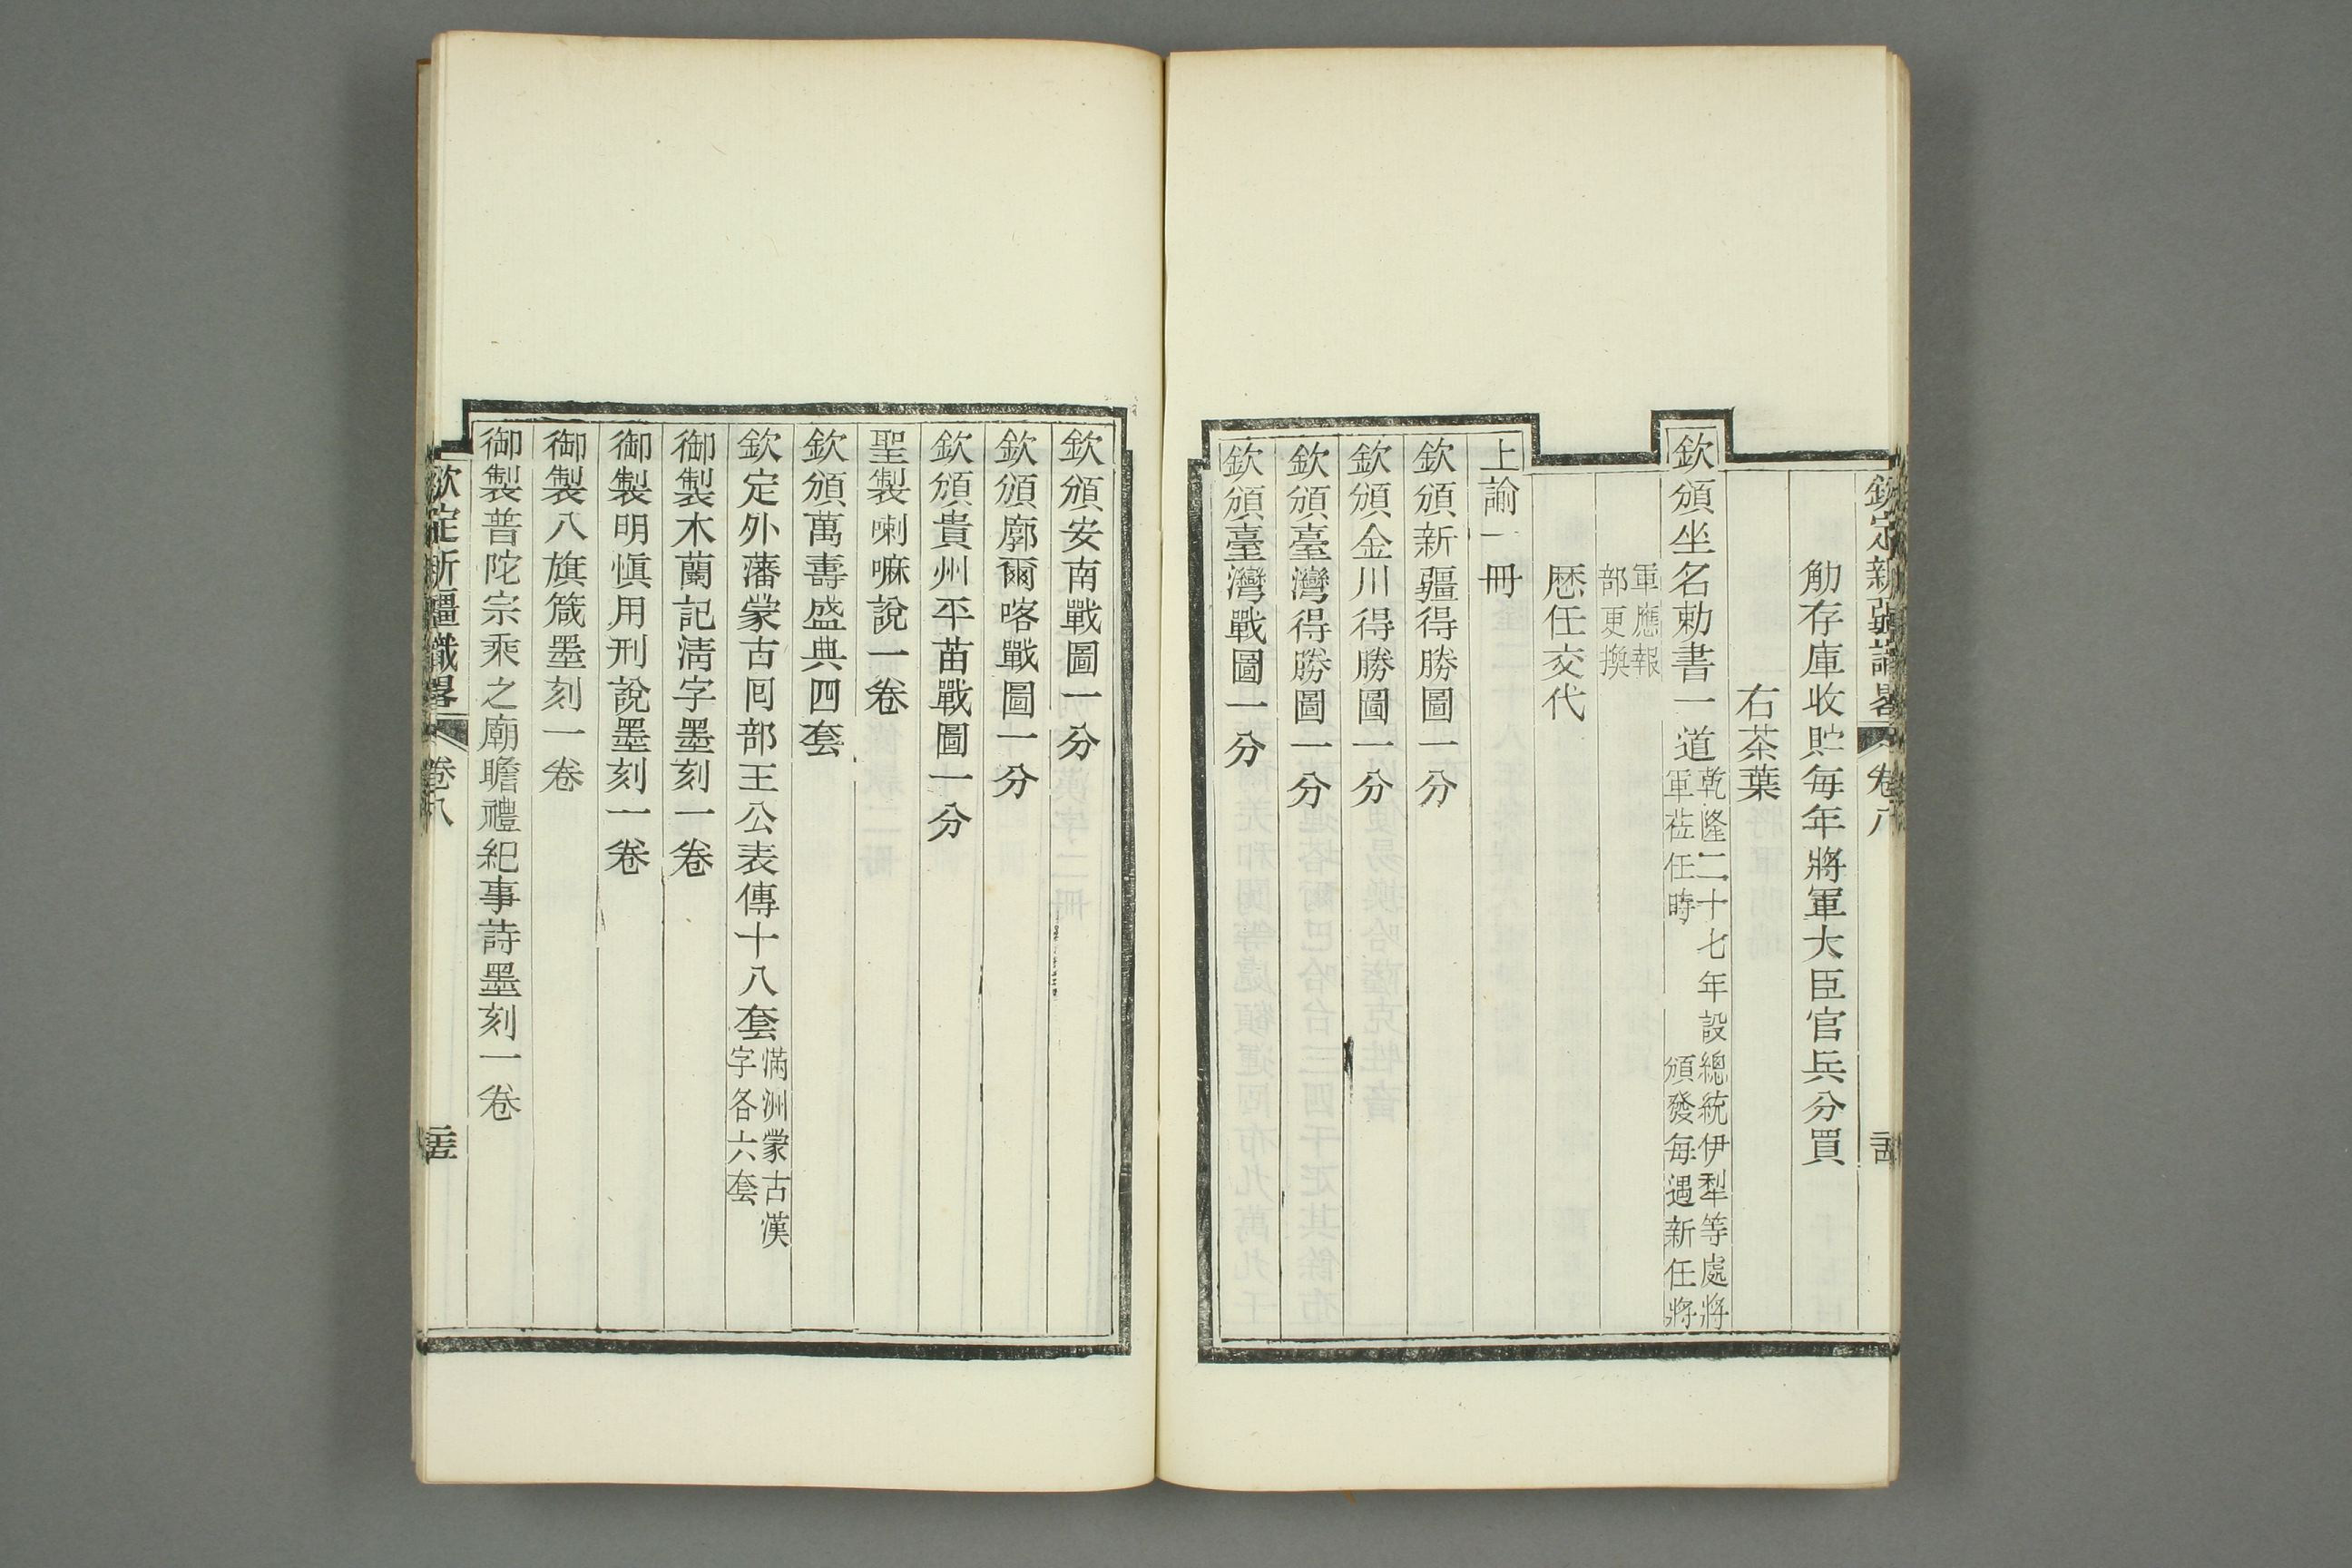 欽定新疆識畧 卷八
觔存庫收貯每年將軍大臣官兵分買
右茶葉
欽頒坐名勅書一道乾隆二十七年設總統伊犁等處將
軍蒞任時 頒發每遇新任將
軍應報
部更換
歷任交代
上諭一冊
欽頒新疆得勝圖一分
欽頒金川得勝圖一分
欽頒臺灣得勝圖一分
欽頒臺灣戰圖一分
欽頒安南戰圖一分
欽頒廓爾喀戰圖一分
欽頒貴州平苗戰圖一分
聖製喇嘛說一卷
欽頒萬壽盛典四套
欽定外藩蒙古囘部王公表傳十八套滿洲蒙古漢
字各六套
御製木蘭記淸字墨刻一卷
御製明愼用刑說墨刻一卷
御製八旗箴墨刻一卷
御製普陀宗乘之廟瞻禮紀事詩墨刻一卷
欽定新疆識畧 卷八